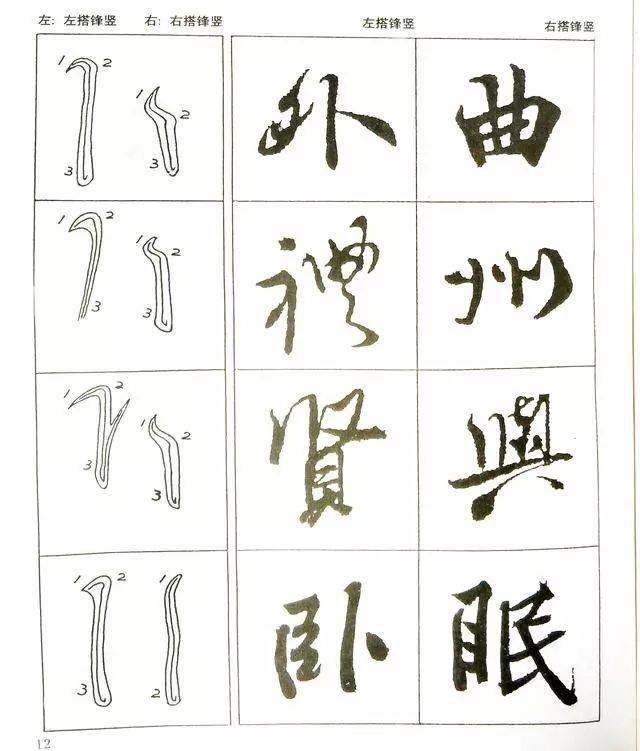 左：左搭锋竖 右：右搭锋竖 左搭锋竖 右搭锋竖
1 2 3 1 2 3 外 曲
1 2 3 1 2 3 禮 州
1 2 3 1 2 3 賢 與
1 2 3 1 2 卧 眠
12